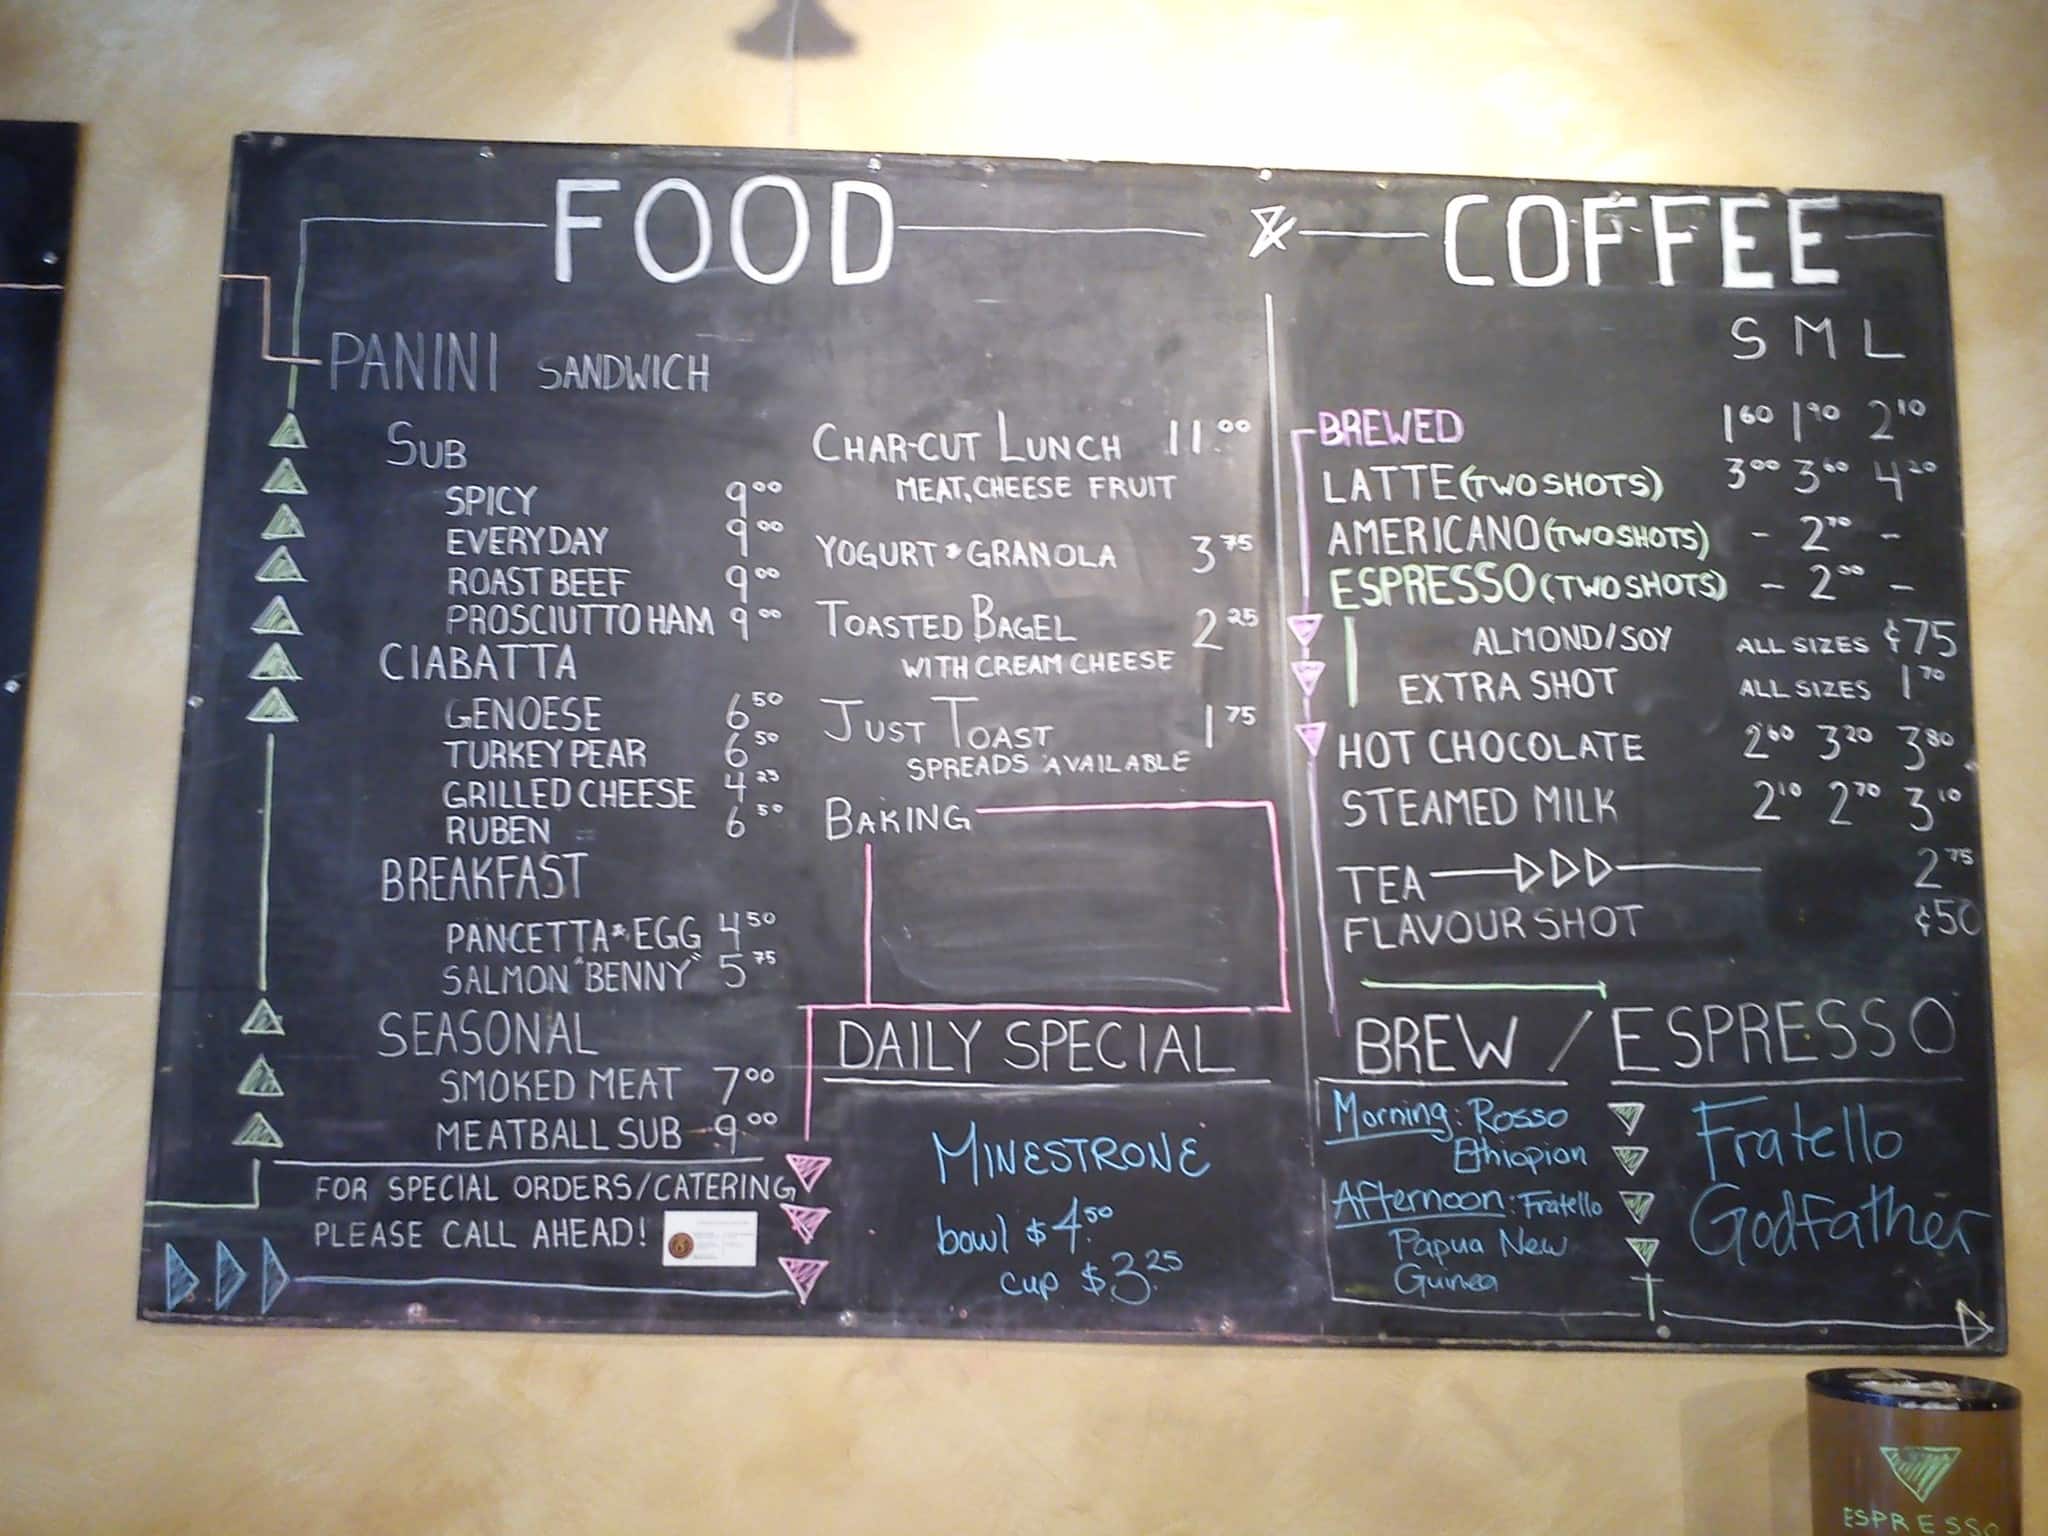 FOOD & COFFEE
PANINI SANDWICH
SUB
SPICY 9.00
EVERYDAY 9.00
ROAST BEEF 9.00
PROSCIUTTO HAM 9.00
CIABATTA
GENOESE 6.50
TURKEY PEAR 6.50
GRILLED CHEESE 4.25
RUBEN 6.50
BREAKFAST
PANCETTA & EGG 4.50
SALMON "BENNY" 5.75
SEASONAL
SMOKED MEAT 7.00
MEATBALL SUB 9.00
FOR SPECIAL ORDERS/CATERING
PLEASE CALL AHEAD!
CHAR-CUT LUNCH 11.00
MEAT, CHEESE FRUIT
YOGURT & GRANOLA 3.75
TOASTED BAGEL 2.25
WITH CREAM CHEESE
JUST TOAST 1.75
SPREADS AVAILABLE
BAKING
DAILY SPECIAL
MINESTRONE
bowl $4.50
cup $3.25
S M L
BREWED 1.60 1.90 2.10
LATTE (TWO SHOTS) 3.00 3.60 4.20
AMERICANO (TWO SHOTS) - 2.70 -
ESPRESSO (TWO SHOTS) - 2.00 -
ALMOND/SOY ALL SIZES ¢75
EXTRA SHOT ALL SIZES 1.70
HOT CHOCOLATE 2.60 3.20 3.80
STEAMED MILK 2.10 2.70 3.10
TEA 2.75
FLAVOUR SHOT ¢50
BREW / ESPRESSO
Morning: Rosso
Ethiopian
Afternoon: Fratello
Papua New
Guinea
Fratello
Godfather
ESPRESSO